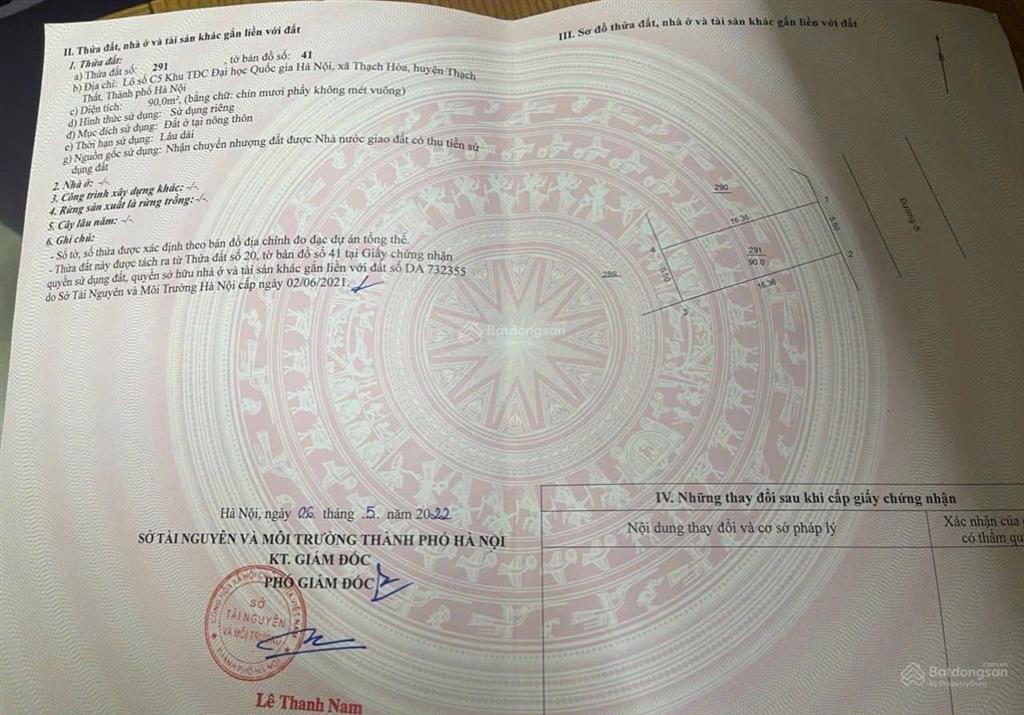 II. Thửa đất, nhà ở và tài sản khác gắn liền với đất
1. Thửa đất:
a) Thửa đất số: 291 , tờ bản đồ số: 41
b) Địa chỉ: Lô số C5 Khu TĐC Đại học Quốc gia Hà Nội, xã Thạch Hòa, huyện Thạch
Thất, Thành phố Hà Nội
c) Diện tích: 90,0m², (bằng chữ: chín mươi phẩy không mét vuông)
d) Hình thức sử dụng: Sử dụng riêng
đ) Mục đích sử dụng: Đất ở tại nông thôn
e) Thời hạn sử dụng: Lâu dài
g) Nguồn gốc sử dụng: Nhận chuyển nhượng đất được Nhà nước giao đất có thu tiền sử
dụng đất
2. Nhà ở: -/-.
3. Công trình xây dựng khác: -/-.
4. Rừng sản xuất là rừng trồng: -/-.
5. Cây lâu năm: -/-
6. Ghi chú:
- Số tờ, số thửa được xác định theo bản đồ địa chính đo đạc dự án tổng thể.
- Thửa đất này được tách ra từ Thửa đất số 20, tờ bản đồ số 41 tại Giấy chứng nhận
quyền sử dụng đất, quyền sở hữu nhà ở và tài sản khác gắn liền với đất số DA 732355
do Sở Tài Nguyên và Môi Trường Hà Nội cấp ngày 02/06/2021.
Hà Nội, ngày 06 tháng 5 năm 2022
SỞ TÀI NGUYÊN VÀ MÔI TRƯỜNG THÀNH PHỐ HÀ NỘI
KT. GIÁM ĐỐC
PHÓ GIÁM ĐỐC
SỞ
TÀI NGUYÊN
VÀ MÔI TRƯỜNG
THÀNH PHỐ HÀ NỘI
Lê Thanh Nam
III. Sơ đồ thửa đất, nhà ở và tài sản khác gắn liền với đất
290
1
16.36
5.50
Đường đi
4
291
90.0
2
289
5.50
16.36
3
Batdongsan
by PropertyGuru
IV. Những thay đổi sau khi cấp giấy chứng nhận
Nội dung thay đổi và cơ sở pháp lý
Xác nhận của
có thẩm qu
Batdongsan
.com.vn
by PropertyGuru